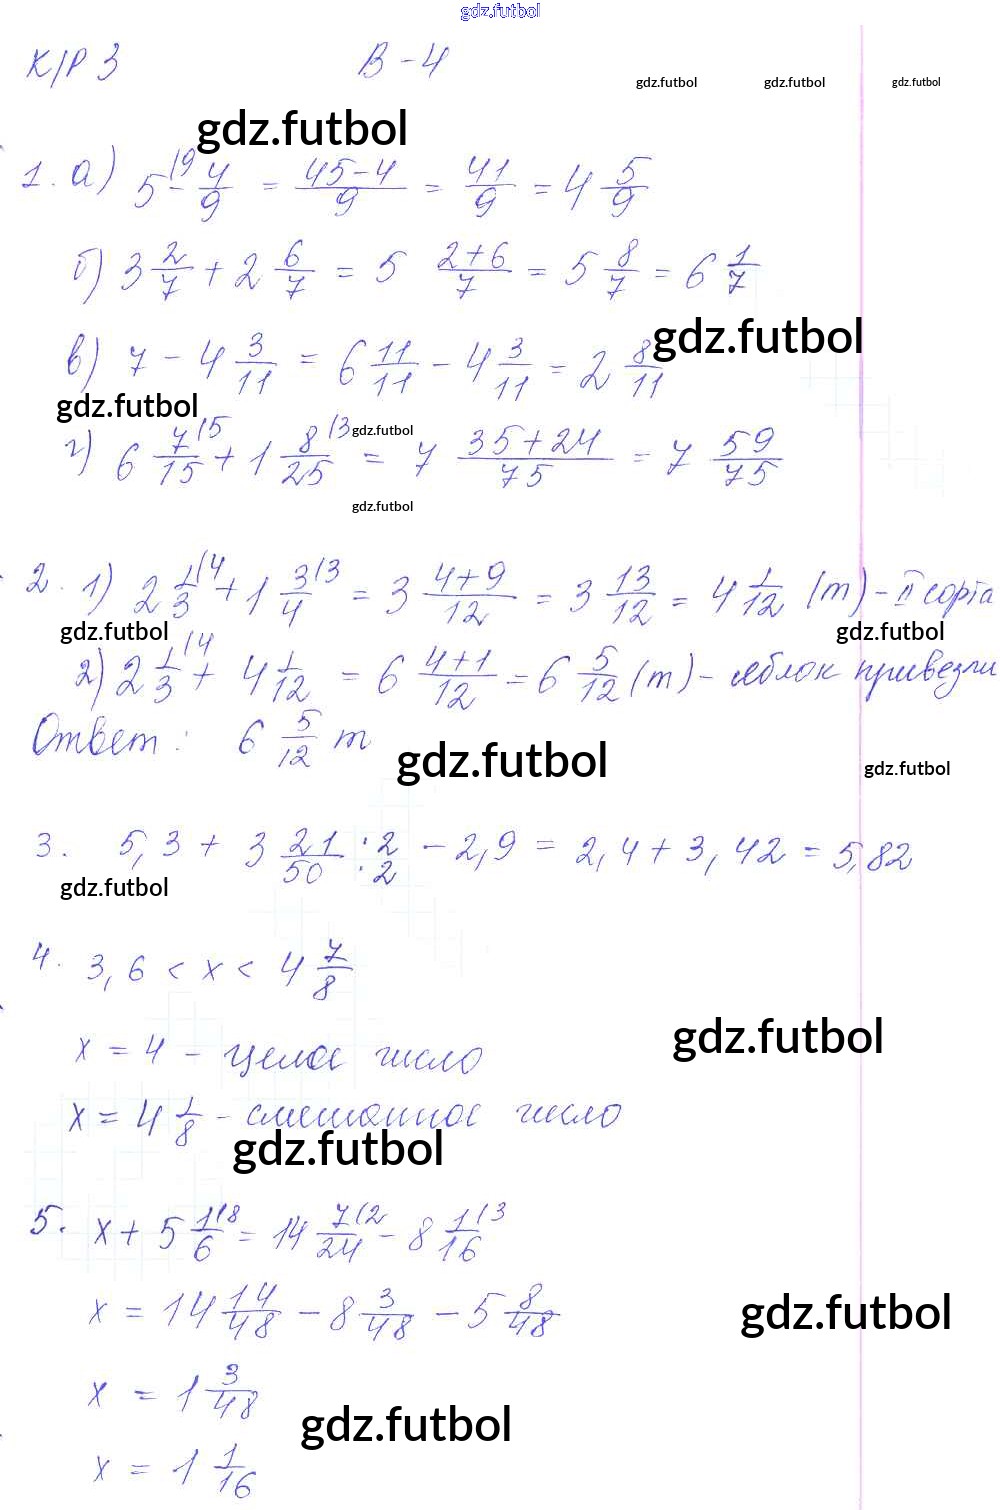 gdz.futbol
К/Р 3 В-4
gdz.futbol gdz.futbol gdz.futbol
gdz.futbol
1. а) 5 - 4/9 = (45-4)/9 = 41/9 = 4 5/9
б) 3 2/7 + 2 6/7 = 5 (2+6)/7 = 5 8/7 = 6 1/7
gdz.futbol
в) 7 - 4 3/11 = 6 11/11 - 4 3/11 = 2 8/11
gdz.futbol
gdz.futbol
г) 6 7/15 + 1 8/25 = 7 (35+24)/75 = 7 59/75
gdz.futbol
2. 1) 2 1/3 + 1 3/4 = 3 (4+9)/12 = 3 13/12 = 4 1/12 (т) - II сорта
gdz.futbol gdz.futbol
2) 2 1/3 + 4 1/12 = 6 (4+1)/12 = 6 5/12 (т) - яблок привезли
Ответ: 6 5/12 т
gdz.futbol gdz.futbol
3. 5,3 + 3 21/50 ·2/·2 - 2,9 = 2,4 + 3,42 = 5,82
gdz.futbol
4. 3,6 < x < 4 7/8
gdz.futbol
x = 4 - целое число
x = 4 1/8 - смешанное число
gdz.futbol
5. x + 5 1/6 = 14 7/24 - 8 1/16
x = 14 14/48 - 8 3/48 - 5 8/48
gdz.futbol
x = 1 3/48
gdz.futbol
x = 1 1/16